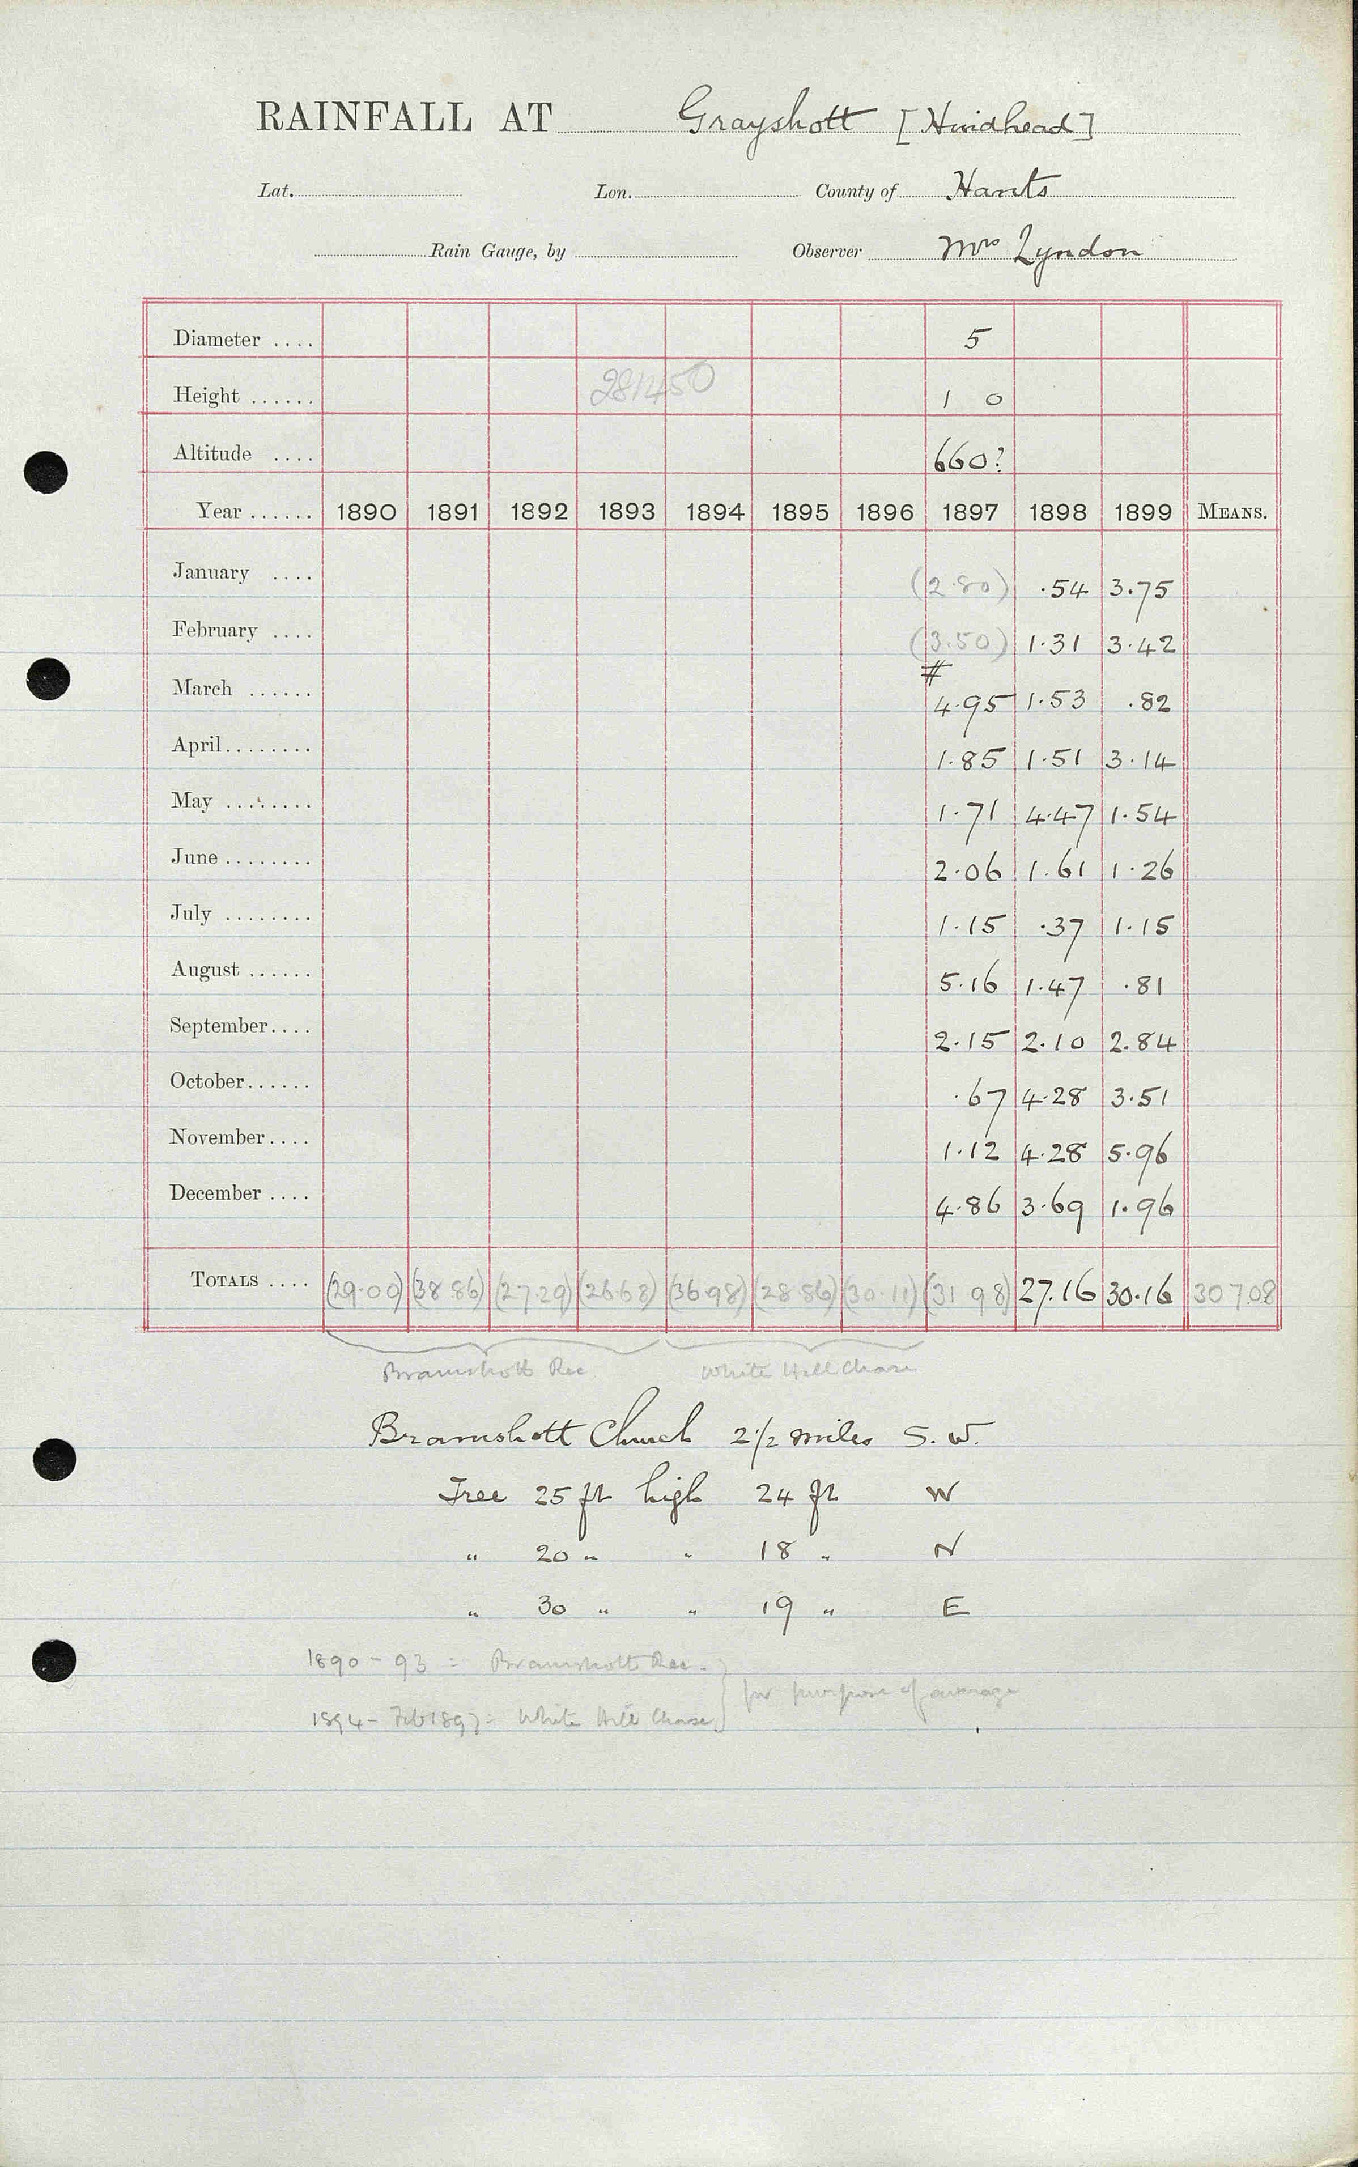 RAINFALL AT Grayshott [Hindhead]
Lat. Lon. County of Hants
Rain Gauge, by Observer Mrs Lyndon
Diameter .... 5
Height ...... 281450 1 0
Altitude .... 660?
Year ...... 1890 1891 1892 1893 1894 1895 1896 1897 1898 1899 MEANS.
January .... (2.80) .54 3.75
February .... (3.50) 1.31 3.42
#
March ...... 4.95 1.53 .82
April........ 1.85 1.51 3.14
May ........ 1.71 4.47 1.54
June ........ 2.06 1.61 1.26
July ........ 1.15 .37 1.15
August ...... 5.16 1.47 .81
September.... 2.15 2.10 2.84
October...... .67 4.28 3.51
November.... 1.12 4.28 5.96
December .... 4.86 3.69 1.96
TOTALS .... (29.00) (38.86) (27.29) (26.68) (36.98) (28.86) (30.11) (31 98) 27.16 30.16 307.08
Bramshott Rec. White Hill Chase
Bramshott Church 2 1/2 miles S. W.
Tree 25 ft high 24 ft W
" 20 " " 18 " N
" 30 " " 19 " E
1890 - 93 = Bramshott Rec. } for purpose of average
1894 - Feb 1897 = White Hill Chase }